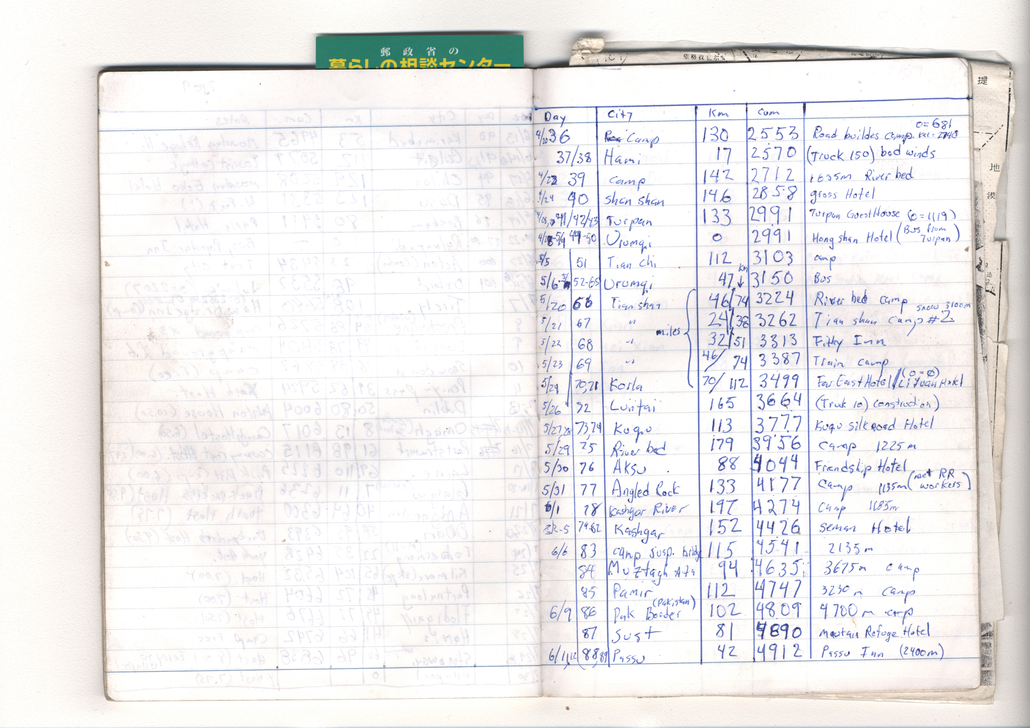 郵政省の
暮らしの相談センター
提
地
Day City Km cum
0=681
36 Camp 130 2553 Road buildes camp
37/38 Hami 17 2570 (Truck 150) bad winds
4/23 39 camp 142 2712 1635m River bed
4/24 40 shan shan 146 2858 grass Hotel
41/42/43 Turpan 133 2991 Turpan Guest House (0=1119)
49-50 Urumqi 0 2991 Hong shan Hotel (Bus from Turpan)
5/5 51 Tian chi 112 3103 camp
5/6 52-65 Urumqi 47 3150 Bus
5/20 66 Tian shan 46/74 3224 River bed camp snow 3100m
5/21 67 " 24/38 3262 Tian shan camp #2
miles
5/22 68 " 32/51 3313 Filthy Inn
5/23 69 " 46/74 3387 Train camp
5/24 70,71 Korla 70/112 3499 Far East Hotel/Li Yuan Hotel (0=0)
5/26 72 Luntai 165 3664 (Truck 10) construction)
5/27,28 73,74 Kuqu 113 3777 Kuqu silk road Hotel
5/29 75 River bed 179 3956 Camp 1225m
5/30 76 Aksu 88 4044 Friendship Hotel
5/31 77 Angled Rock 133 4177 Camp 1135m (met RR workers)
6/1 78 Kashgar River 197 4274 camp 1185m
79-82 Kashgar 152 4426 Seman Hotel
6/6 83 camp susp. bridg 115 4541 2135m
84 Muztagh Ata 94 4635 3675m camp
85 Pamir 112 4747 3230m camp
6/9 86 Pak Border (Pakistan) 102 4809 4700m camp
87 Sust 81 4890 mountain Refuge Hotel
88,89 Passu 42 4912 Passu Inn (2400m)